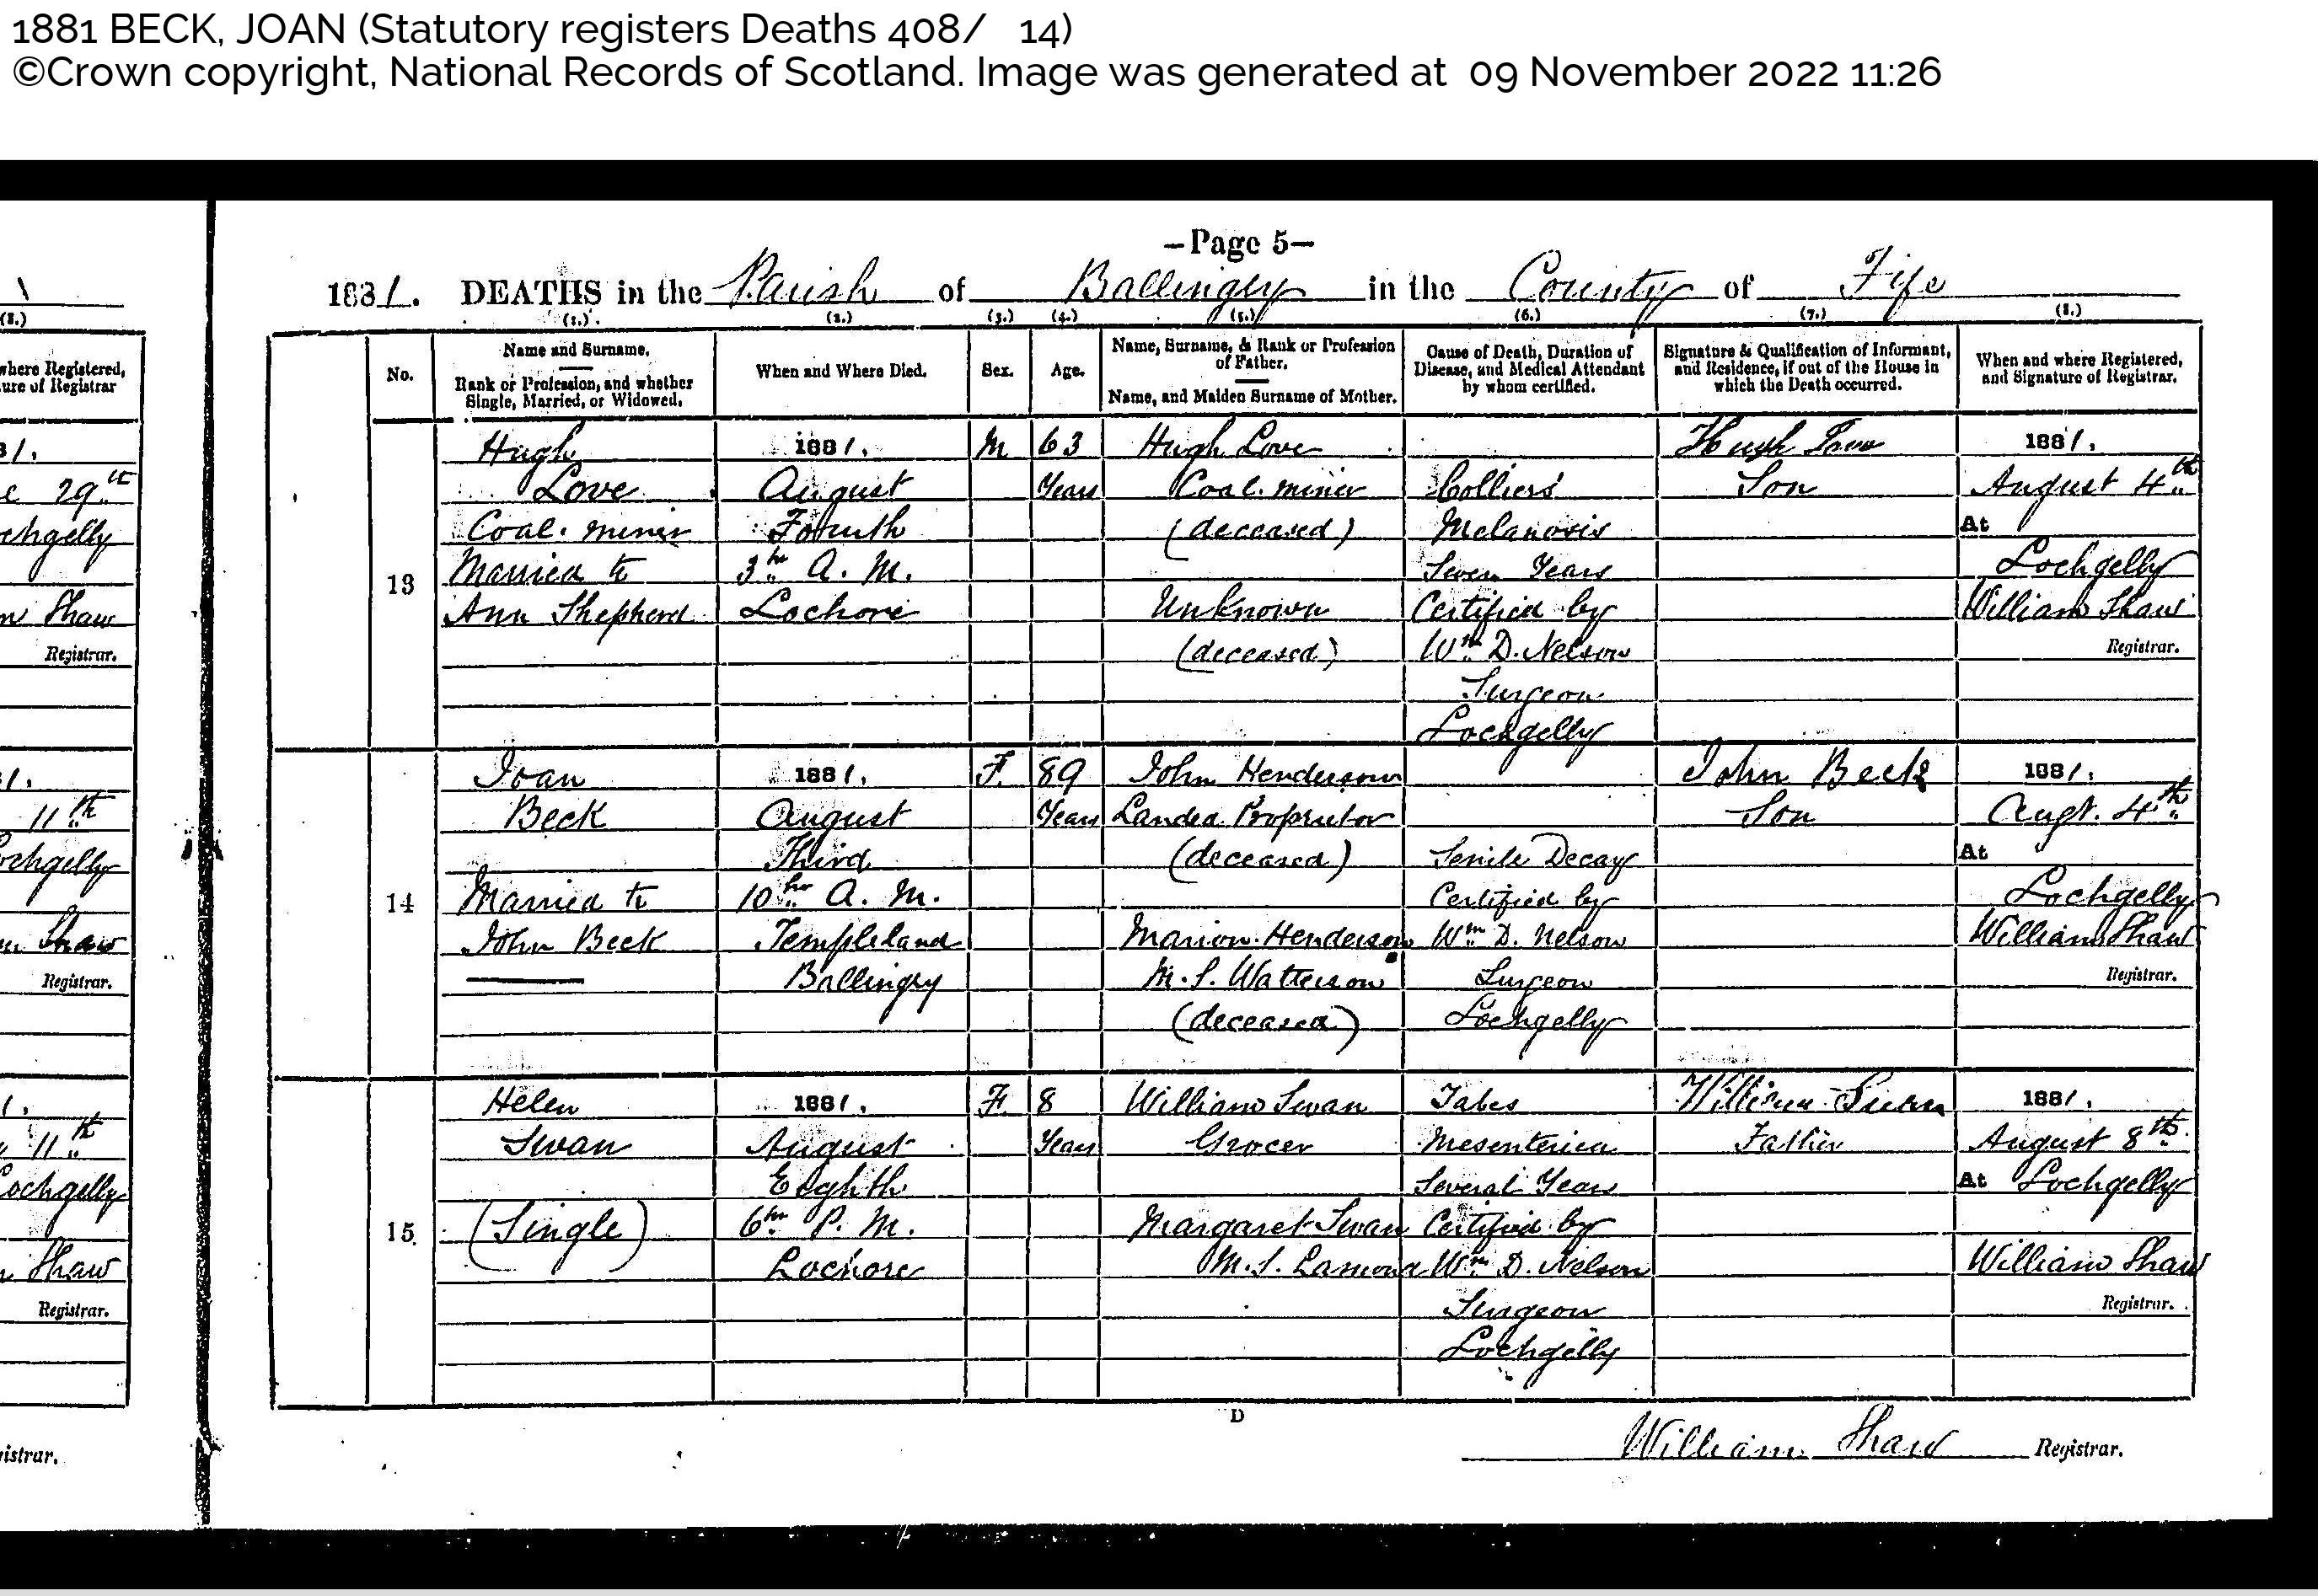 1881 BECK, JOAN (Statutory registers Deaths 408/ 14)
©Crown copyright, National Records of Scotland. Image was generated at 09 November 2022 11:26
—Page 5—
1881. DEATHS in the Parish of Ballingry in the County of Fife
(1.) (2.) (3.) (4.) (5.) (6.) (7.) (8.)
No.
Name and Surname.
Rank or Profession, and whether
Single, Married, or Widowed.
When and Where Died.
Sex.
Age.
Name, Surname, & Rank or Profession
of Father.
Name, and Maiden Surname of Mother.
Cause of Death, Duration of
Disease, and Medical Attendant
by whom certified.
Signature & Qualification of Informant,
and Residence, if out of the House in
which the Death occurred.
When and where Registered,
and Signature of Registrar.
13
Hugh
Love
Coal miner
Married to
Ann Shepherd
1881.
August
Fourth
3hr A. M.
Lochore
M
63
Years
Hugh Love
Coal miner
(deceased)
Unknown
(deceased)
Colliers'
Melanosis
Seven Years
Certified by
Wm D. Nelson
Surgeon
Lochgelly
Hugh Love
Son
1881.
August 4th
At
Lochgelly
William Shaw
Registrar.
14
Joan
Beck
Married to
John Beck
1881.
August
Third
10hr A. M.
Templeland
Ballingry
F.
89
Years
John Henderson
Landed Proprietor
(deceased)
Marion Henderson
M.S. Watterson
(deceased)
Senile Decay
Certified by
Wm D. Nelson
Surgeon
Lochgelly
John Beck
Son
1881.
Augt. 4th
At
Lochgelly
William Shaw
Registrar.
15
Helen
Swan
(Single)
1881.
August
Eighth
6hr P. M.
Lochore
F.
8
Years
William Swan
Grocer
Margaret Swan
M.S. Lamond
Tabes
Mesenterica
Several Years
Certified by
Wm D. Nelson
Surgeon
Lochgelly
William Swan
Father
1881.
August 8th
At Lochgelly
William Shaw
Registrar.
D
William Shaw Registrar.